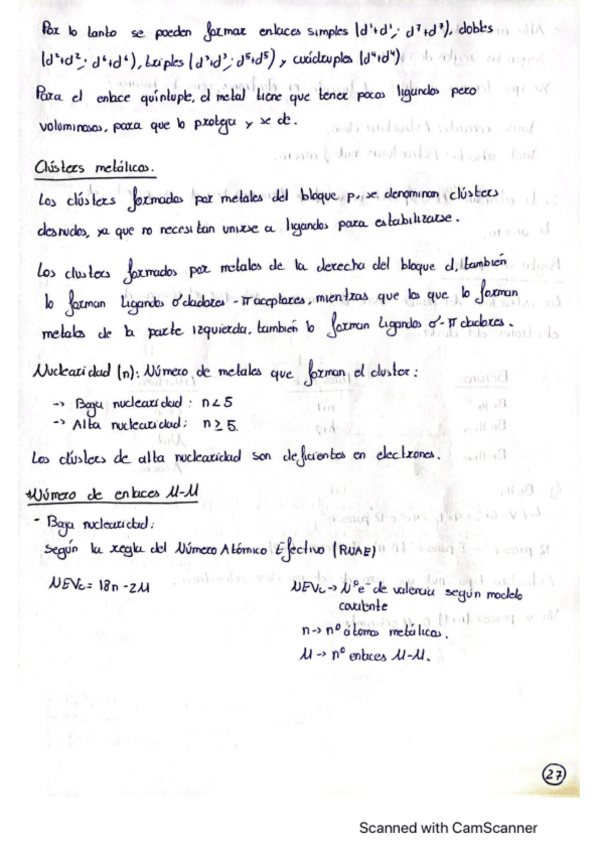 Por lo tanto se pueden formar enlaces simples (d¹+d¹; d⁷+d⁷), dobles
(d²+d²; d⁶+d⁶), triples (d³+d³; d⁵+d⁵) y cuádruples (d⁴+d⁴)
Para el enlace quíntuple, el metal tiene que tener pocos ligandos pero
voluminosos, para que lo proteja y se de.
Clústers metálicos.
Los clústers formados por metales del bloque p, se denominan clústers
desnudos, ya que no necesitan unirse a ligandos para estabilizarse.
Los clusters formados por metales de la derecha del bloque d, también
lo forman Ligandos σ dadores - π aceptores, mientras que los que lo forman
metales de la parte izquierda, también lo forman Ligandos σ-π dadores.
Nuclearidad (n): Número de metales que forman el cluster:
-> Baja nuclearidad: n<5
-> Alta nuclearidad: n≥5.
Los clústers de alta nuclearidad son deficientes en electrones.
*Número de enlaces M-M
- Baja nuclearidad:
Según la regla del Número Atómico Efectivo (RNAE)
NEVc = 18n - 2M
NEVc -> Nº e⁻ de valencia según modelo
covalente
n -> nº átomos metálicos.
M -> nº enlaces M-M.
27
Scanned with CamScanner